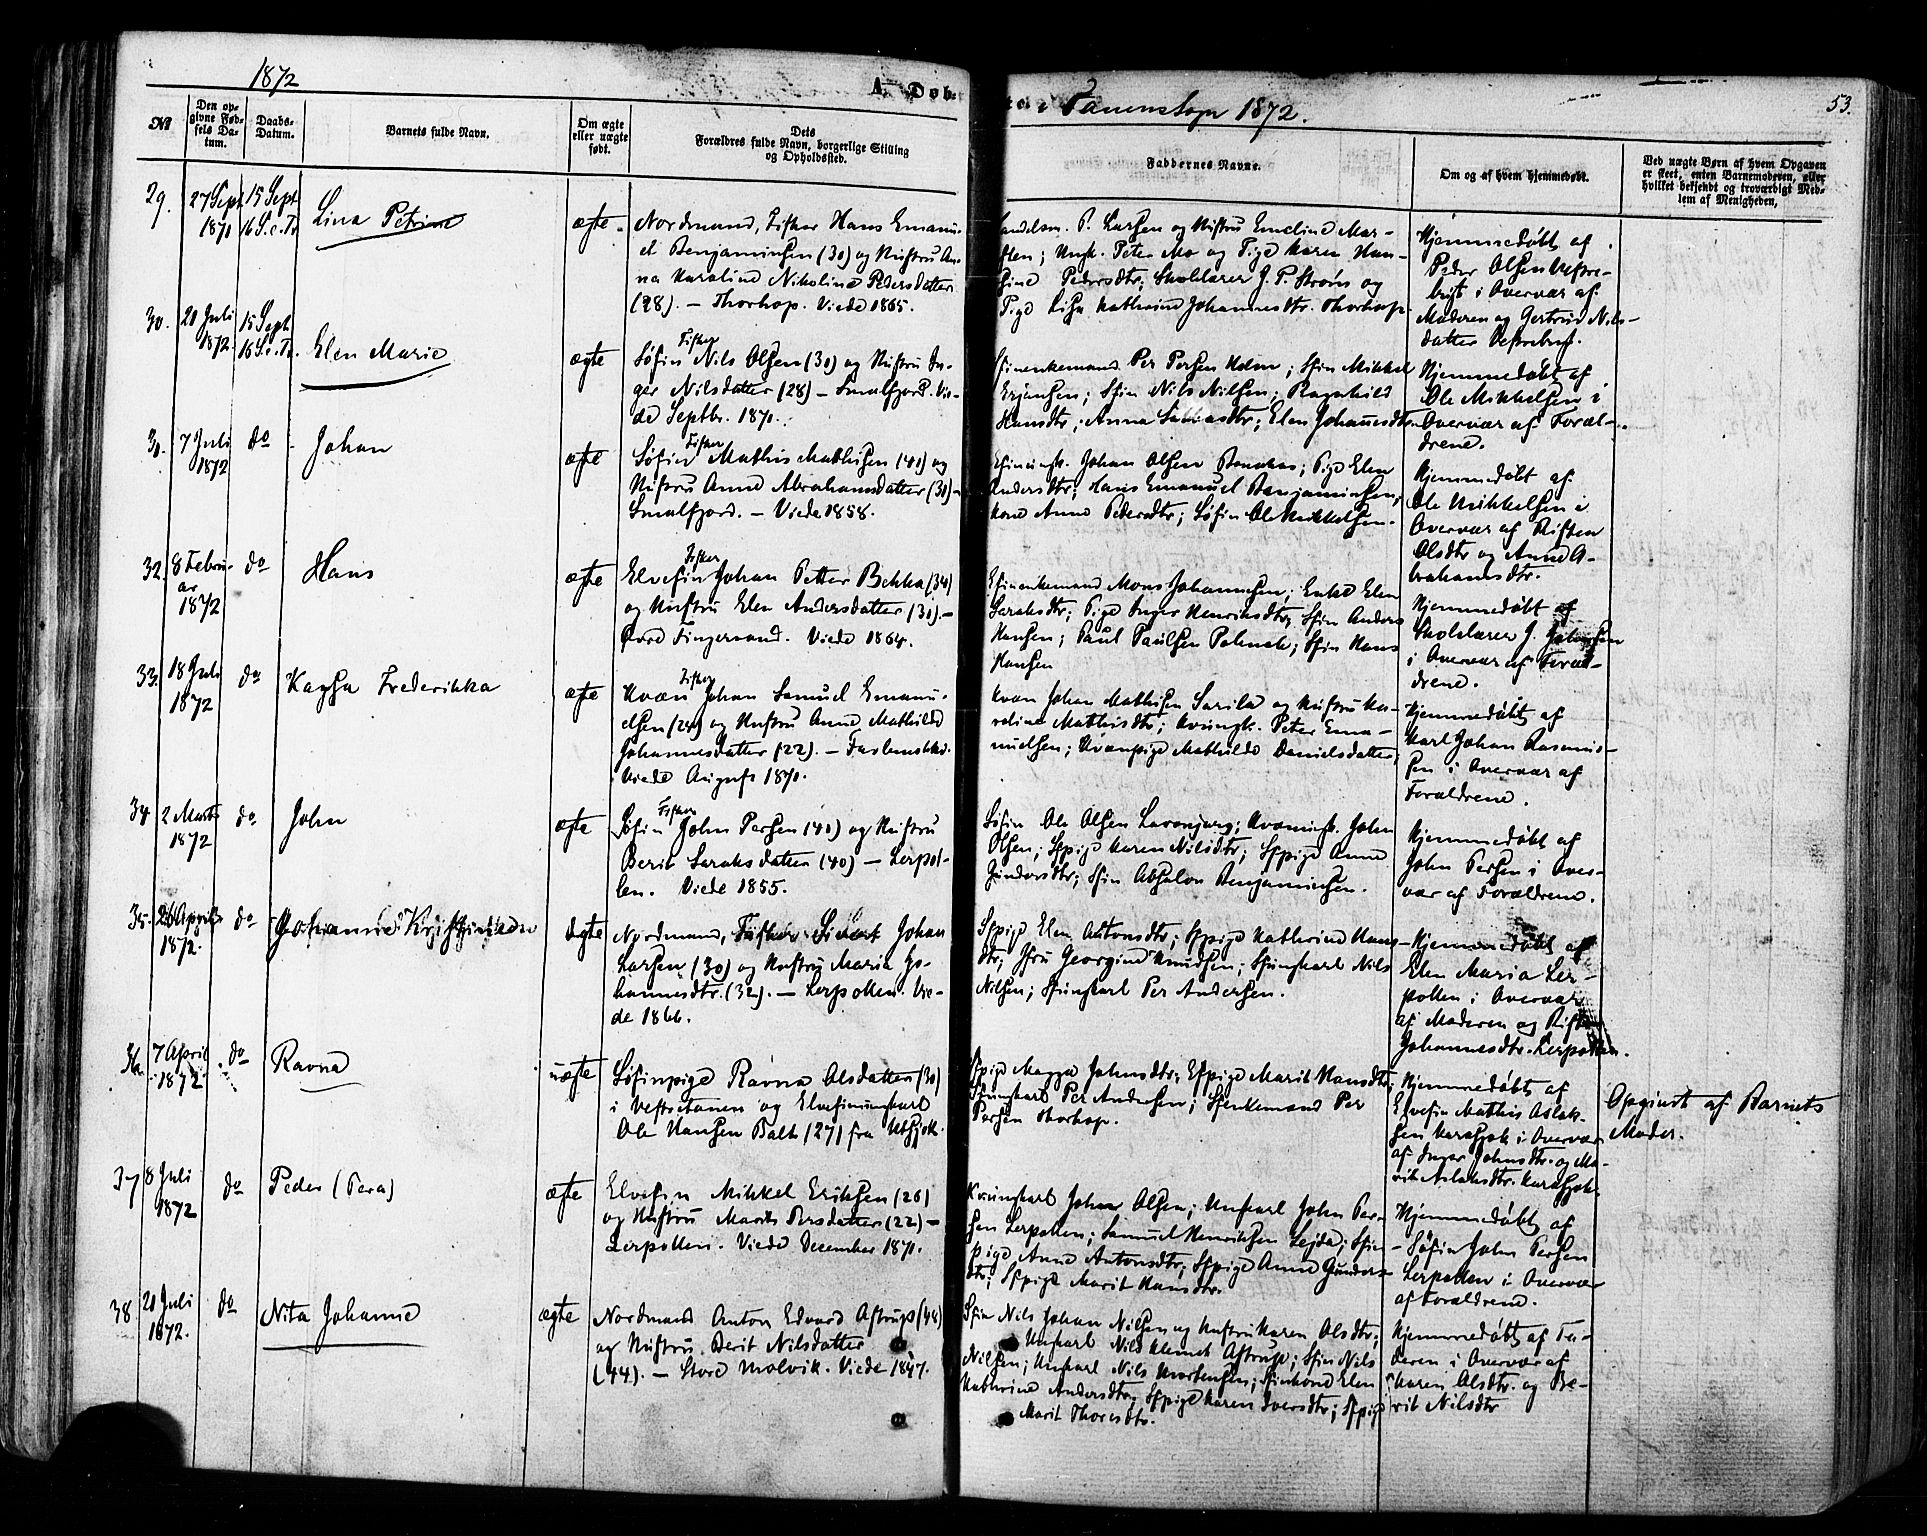 1872
A. Døb-
te i Tanen Sogn 1872.
53.
No
Den op-
givne Fød-
sels Da-
tum.
Daabs-
Datum.
Barnets fulde Navn.
Om ægte
eller uægte
født.
Dets
Forældres fulde Navn, borgerlige Stilling
og Opholdssted.
Faddernes Navne.
Om og af hvem hjemmedøbt.
Ved uægte Børn af hvem Opgaven
er skeet, enten Barnemoderen, eller
hvilket bekjendt og troværdigt Med-
lem af Menigheden.
29.
27 Sept
1871
15 Sept
16 S. e. Tr.
Lina Petrine
ægte.
Nordmand, Fisker Hans Emanu-
el Benjaminsen (30) og Hustru An-
na Karoline Nikoline Pedersdatter
(28). – Thorhop. Viede 1865.
Handelsm. P. Larsen og Hustru Emeline Mar-
Ungk. Peter Mo og Pige Karen Han-
sine Pedersdtr; Skolelærer J. P. Strøm og
Pige Lisa Kathrine Johannesdtr. Thorhop.
Hjemmedøbt af
Peder Olsen Vestre-
i Overvær af
Moderen og Gertrud Nils-
datter
30.
20 Juli
1872.
15 Sept
16 S. e. Tr.
Elen Marie
ægte
Fisker
Søfin Nils Olsen (30) og Hustru In-
ger Nilsdatter (28) – Smalfjord. Vie-
de Septbr. 1871.
Per Persen Holm; Sfin Mikkel
Erjansen; Sfin Nils Nilsen; Ragnhild
Hansdtr; Anna; Elen Johannesdtr.
Hjemmedøbt af
Ole Mikkelsen i
Overvær af Foræl-
drene.
30.
7 Juli
1872
do
Johan
ægte
Fisker
Søfin Mathis Mathisen (41) og
Hustru Anne Abrahamsdatter (30) –
Smalfjord. – Viede 1858.
Johan Olsen; Pige Elen
Andersdtr; Hans Emanuel Benjaminsen,
Kone Anne Pedersdtr; Søfin Ole Mikkelsen.
Hjemmedøbt af
Ole Mikkelsen i
Overvær af Kisten
Olsdtr og Anne A-
brahamsdtr.
32.
8 Febru-
ar
1872
do
Hans
ægte
Fisker
Elvefin Johan Petter Bekka (34)
og Hustru Elen Andersdatter (30). –
Øvre Fingervand. Viede 1864.
Mons Johannesen; Enke Elen
Saraksdtr; Pige Inger Henriksdtr; Sfin Anders
Hansen; Paul Paulsen; Sfin Hans
Hansen
Hjemmedøbt af
Skolelærer J. Johansen
i Overvær af Foræl-
drene.
33.
18 Juli
1872
do
Kaysa Frederikka
ægte
Fisker
Kvæn Johan Samuel Emanu-
elsen (24) og Hustru Anne Mathilde
Johannesdatter (22). –
Viede August 1870.
Kvæn Johan Mathisen Sarila og Hustru Ka-
roline Mathisdtr; Kvungk. Peter Ema-
nuelsen; Kvænpige Mathilde Danielsdatter.
Hjemmedøbt af
Karl Johan Rasmus-
sen i Overvær af
Forældrene.
34
2 Marts
1872
do
John
ægte
Fisker
Søfin John Persen (40) og Hustru
Berit Saraksdatter (40) – Lerpol-
len. Viede 1855.
Søfin Ole Olsen; Kvæn Johan
Olsen; Sfpige Karen Nilsdtr; Sfpige Anne
Gundersdtr; Sfin Absalon Benjaminsen.
Hjemmedøbt af
John Persen i Over-
vær af Forældrene.
35.
April
1872.
do
ægte
Nordmand, Fisker Johan
Larsen (30) og Hustru Maria Jo-
hannesdtr. (32). – Lerpollen. Vie-
de 1866.
Sfpige Elen Antonsdtr; Sfpige Kathrine Hans-
dtr; Georgine Knudsen; Sfungkarl Nils
Nilsen; Sfungkarl Per Andersen.
Hjemmedøbt af
Elen Maria Ler-
pollen i Overvær
af Moderen og
Johannesdtr. Lerpollen.
36.
7 April
1872
do
Ravna
uægte
Søfinpige Ravna Olsdatter (30)
i Vestertanen og Elvefinungkarl
Ole Hansen Balto (27) fra Utsjok.
Sfpige Magga Johnsdtr; Efpige Marit Hansdtr;
Sfungkarl Per Andersen; Sfenkemand Per
Persen Thorhop.
Hjemmedøbt af
Elvefin Mathis Aslak-
sen Karasjok i Overvær
af Inger Johnsdtr. og Ma-
rit Aslaksdtr. Karasjok.
Opgivet af Barnets
Moder.
37
8 Juli
1872
do
Peder (Pera)
ægte
Elvefin Mikkel Eriksen (26)
og Hustru Marit Persdatter (22) –
Lerpollen. Viede December 1871.
Kvungkarl Johan Olsen; Ungkarl John Per-
sen Lerpollen; Samuel Henriksen Lejda; Sfin-
pige Anne Antonsdtr; Sfpige Anne Gunders-
dtr; Sfpige Marit Hansdtr.
Hjemmedøbt af
Søfin John Persen
Lerpollen i Overvær
af Forældrene.
38
20 Juli
1872.
do
Nita Johanne
ægte
Nordmand Anton Edvard Astrup (48)
og Hustru Berit Nilsdatter
(44). – Store Molvik. Viede 1847.
Sfin Nils Johan Nilsen og Hustru Karen Olsdtr;
Ungkarl Nils Klemet Astrup; Sfin Nils
Nilsen; Ungkarl Nils Mortensen; Sfinkone Elen
Kathrine Andersdtr; Sfpige Karen Iversdtr; Sfpige
Marit Thoresdtr.
Hjemmedøbt af Fa-
deren i Overvær af
Karen Olsdtr. og Be-
rit Nilsdtr